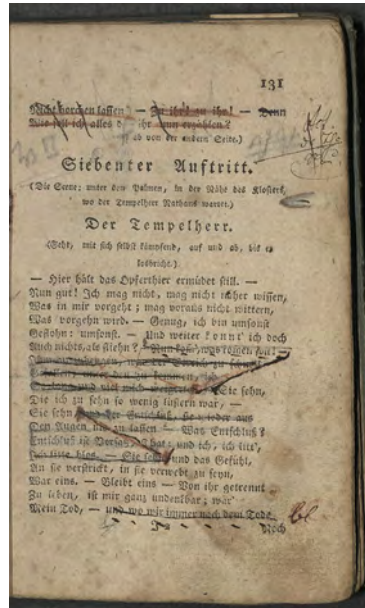 131
Nicht horchen lassen! — Zu ihr! zu ihr! — Denn
Wie soll ich alles das ihr nun erzählen?
ab von der andern Seite.)
Siebenter Auftritt.
(Die Scene: unter den Palmen, in der Nähe des Klosters,
wo der Tempelherr Nathans wartet.)
Der Tempelherr.
(Geht, mit sich selbst kämpfend, auf und ab, bis er
losbricht.)
— Hier hält das Opferthier ermüdet still. —
Nun gut! Ich mag nicht, mag nicht näher wissen,
Was in mir vorgeht; mag voraus nicht wittern,
Was vorgehn wird. — Genug, ich bin umsonst
Geflohn: umsonst. — Und weiter konnt' ich doch
Auch nichts, als fliehn? — Nun komm', was kommen soll! —
Ihm auszubeugen, war der Streich zu schnell
Gefallen; unter den zu kommen, ich
so viel mich weigerte. — Sie sehn,
Die ich zu sehn so wenig lüstern war, —
Sie sehn, und der Entschluß, sie wieder aus
Den Augen nie zu lassen — Was Entschluß?
Entschluß ist Vorsatz, That: und ich, ich litt',
Ich litte blos. — Sie sehn, und das Gefühl,
An sie verstrickt, in sie verwebt zu seyn,
War eins. — Bleibt eins — Von ihr getrennt
Zu leben, ist mir ganz undenkbar; wär'
Mein Tod, — und wo wir immer nach dem Tode
Noch
bl